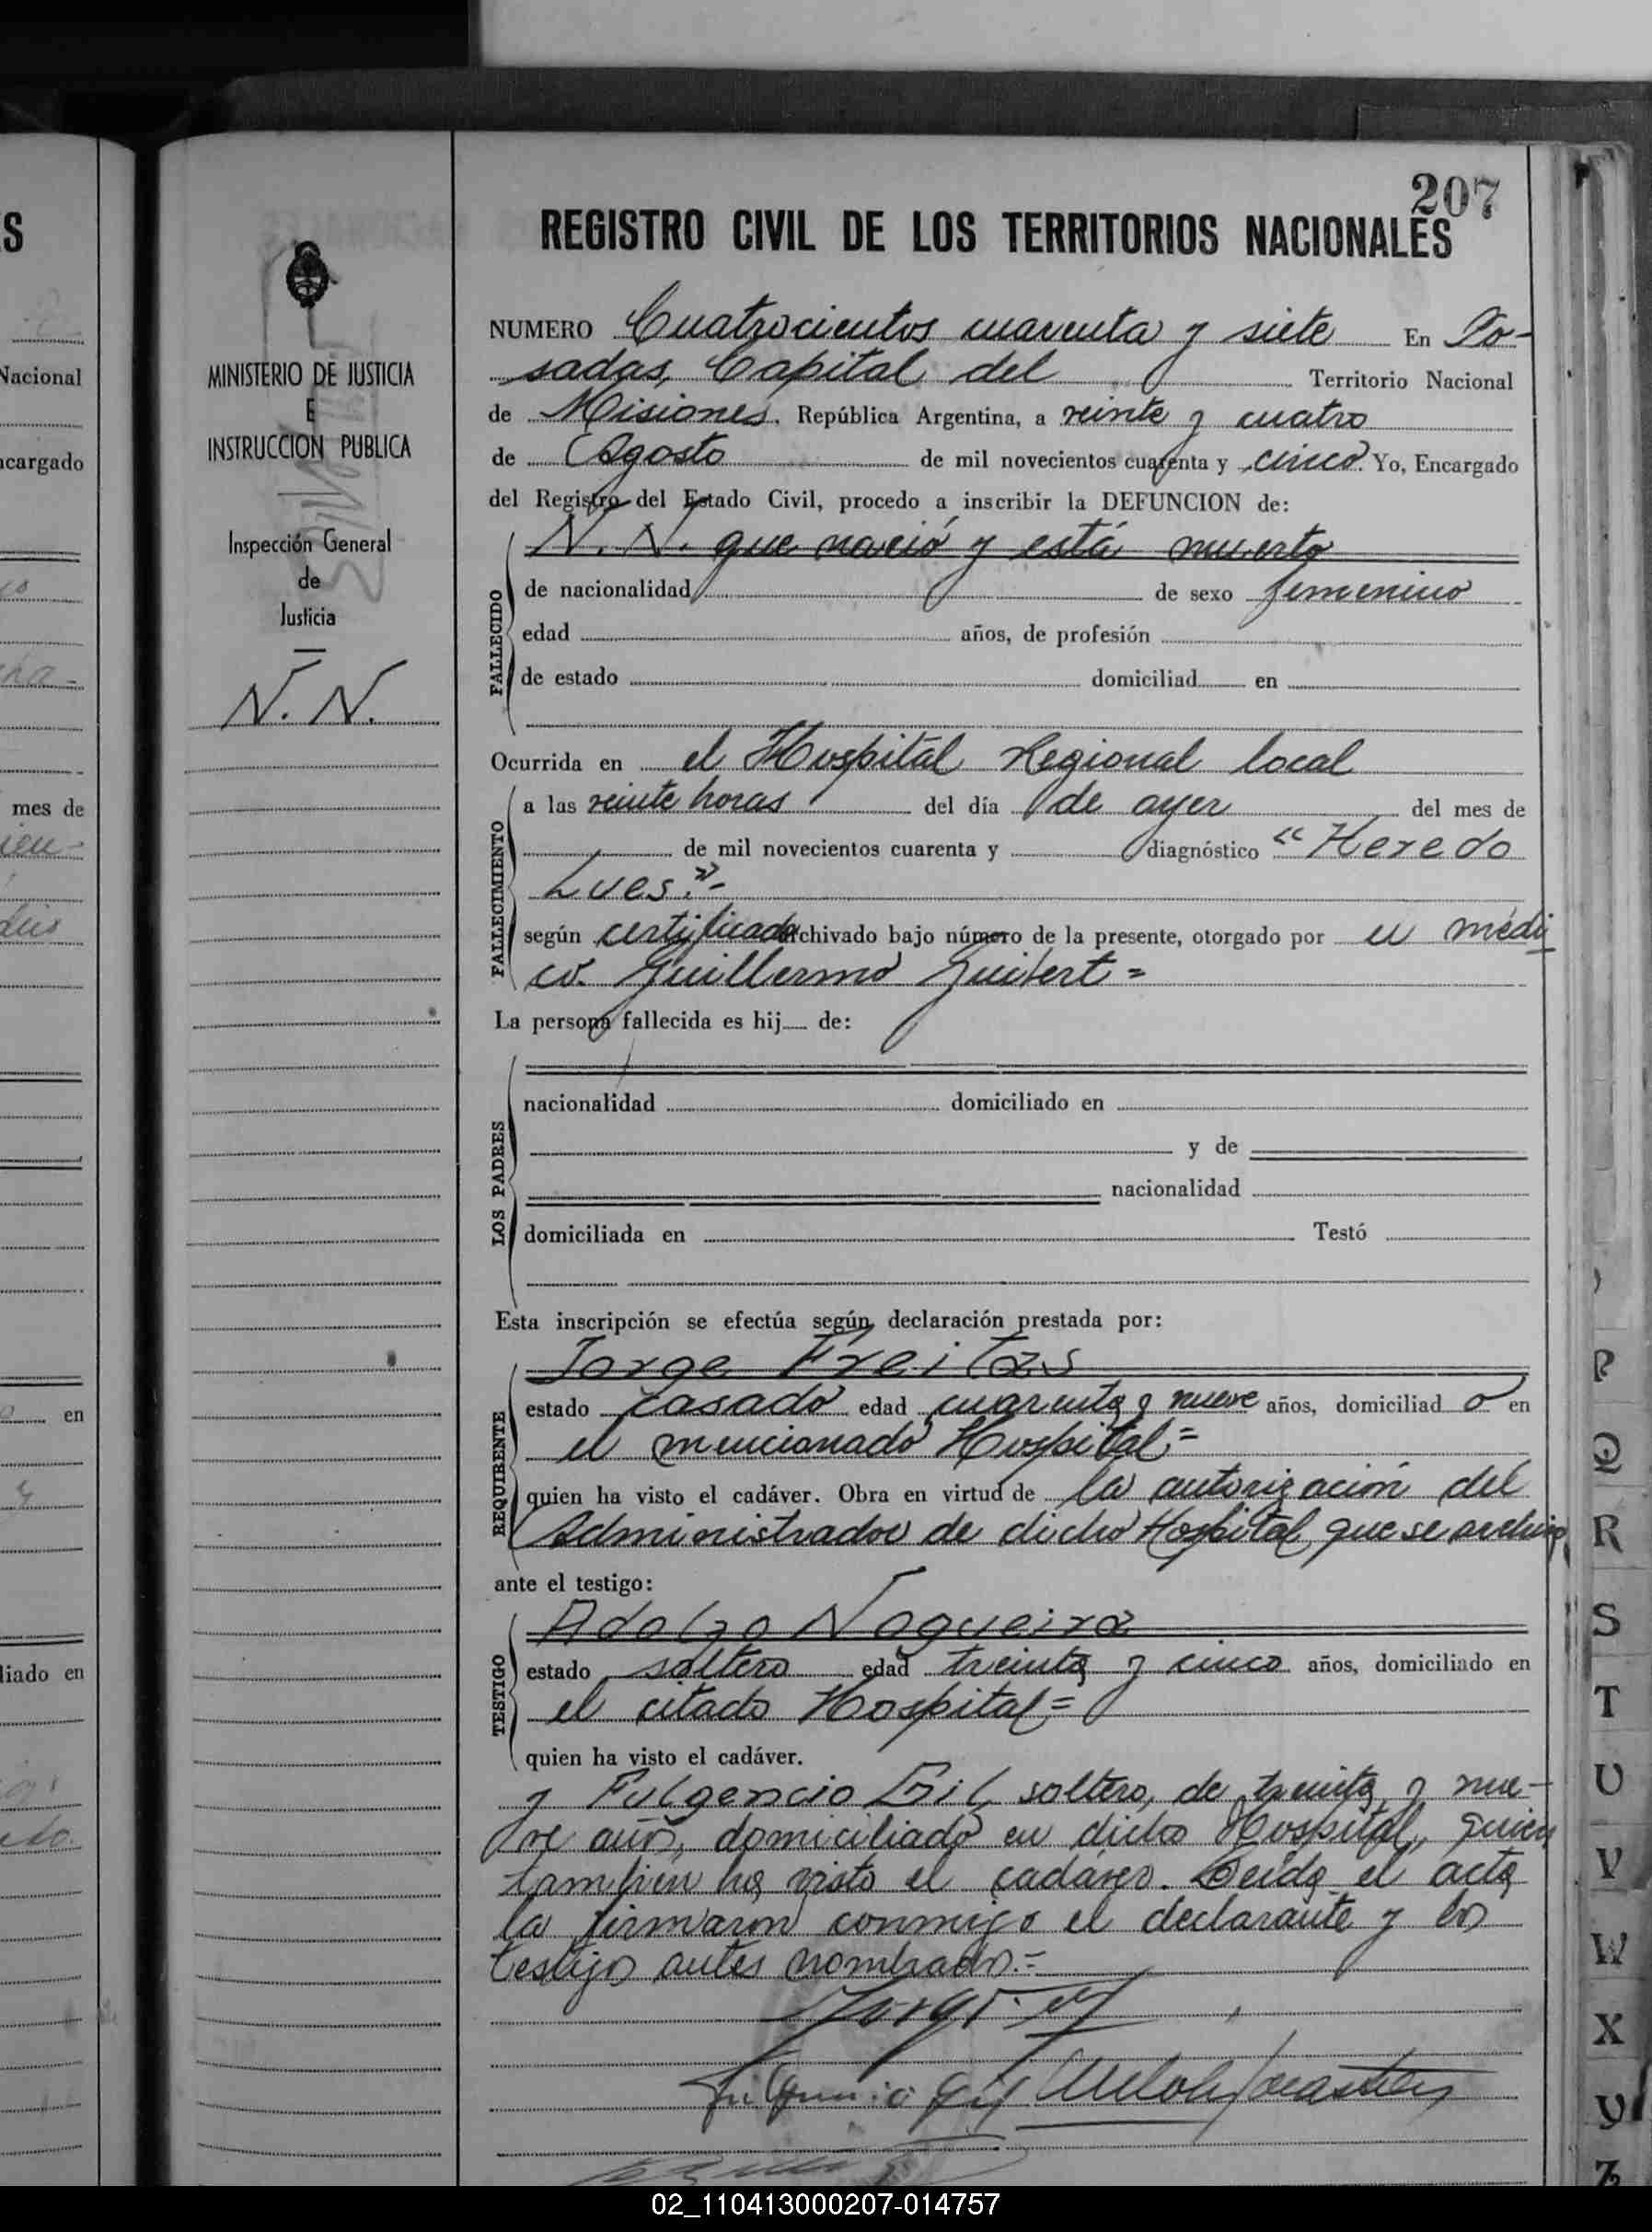 207
REGISTRO CIVIL DE LOS TERRITORIOS NACIONALES
MINISTERIO DE JUSTICIA
E
INSTRUCCION PUBLICA
Inspección General
de
Justicia
N. N.
NUMERO Cuatrocientos cuarenta y siete En Po-
sadas, Capital del Territorio Nacional
de Misiones, República Argentina, a veinte y cuatro
de Agosto de mil novecientos cuarenta y cinco. Yo, Encargado
del Registro del Estado Civil, procedo a inscribir la DEFUNCION de:
FALLECIDO
N. N. que nació y está muerto
de nacionalidad de sexo femenino
edad años, de profesión
de estado domiciliad en
Ocurrida en el Hospital Regional local
FALLECIMIENTO
a las veinte horas del día de ayer del mes de
de mil novecientos cuarenta y diagnóstico "Heredo
Lues."-
según certificado archivado bajo número de la presente, otorgado por el médi
co. Guillermo Guibert=
La persona fallecida es hij de:
LOS PADRES
nacionalidad domiciliado en
y de
nacionalidad
domiciliada en Testó
Esta inscripción se efectúa según declaración prestada por:
REQUIRENTE
Jorge Freitas
estado casado edad cuarenta y nueve años, domiciliad o en
el mencionado Hospital=
quien ha visto el cadáver. Obra en virtud de la autorización del
Administrador de dicho Hospital que se archiva
ante el testigo:
TESTIGO
Adolfo Nogueira
estado soltero edad treinta y cinco años, domiciliado en
el citado Hospital=
quien ha visto el cadáver.
y Fulgencio Gil, soltero, de treinta y nue-
ve años, domiciliado en dicho Hospital, quien
también ha visto el cadáver. Leída el acta
la firmaron conmigo el declarante y los
testigos antes nombrados.=
Fulgencio Gil
S
Nacional
ncargado
mes de
en
liado en
P
Q
R
S
T
U
V
W
X
Y
Z
02_110413000207-014757